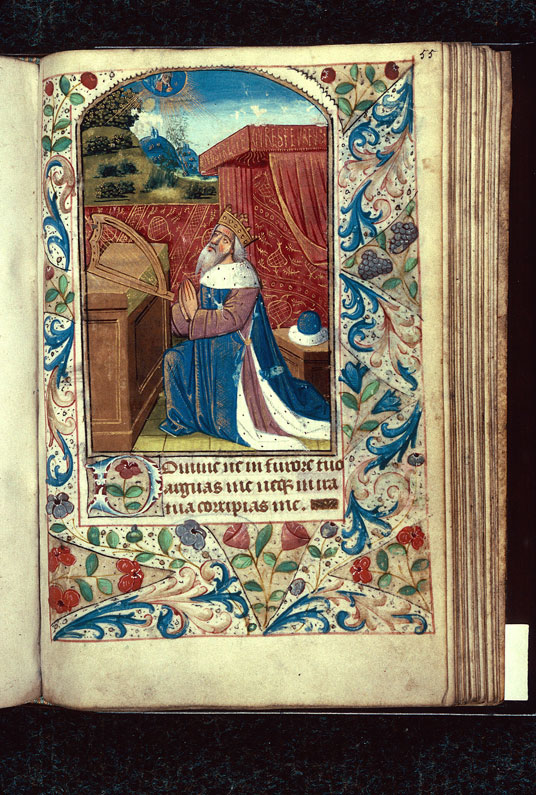 55
Domine ne in furore tuo
arguas me neq3 in ira
tua corripias me.